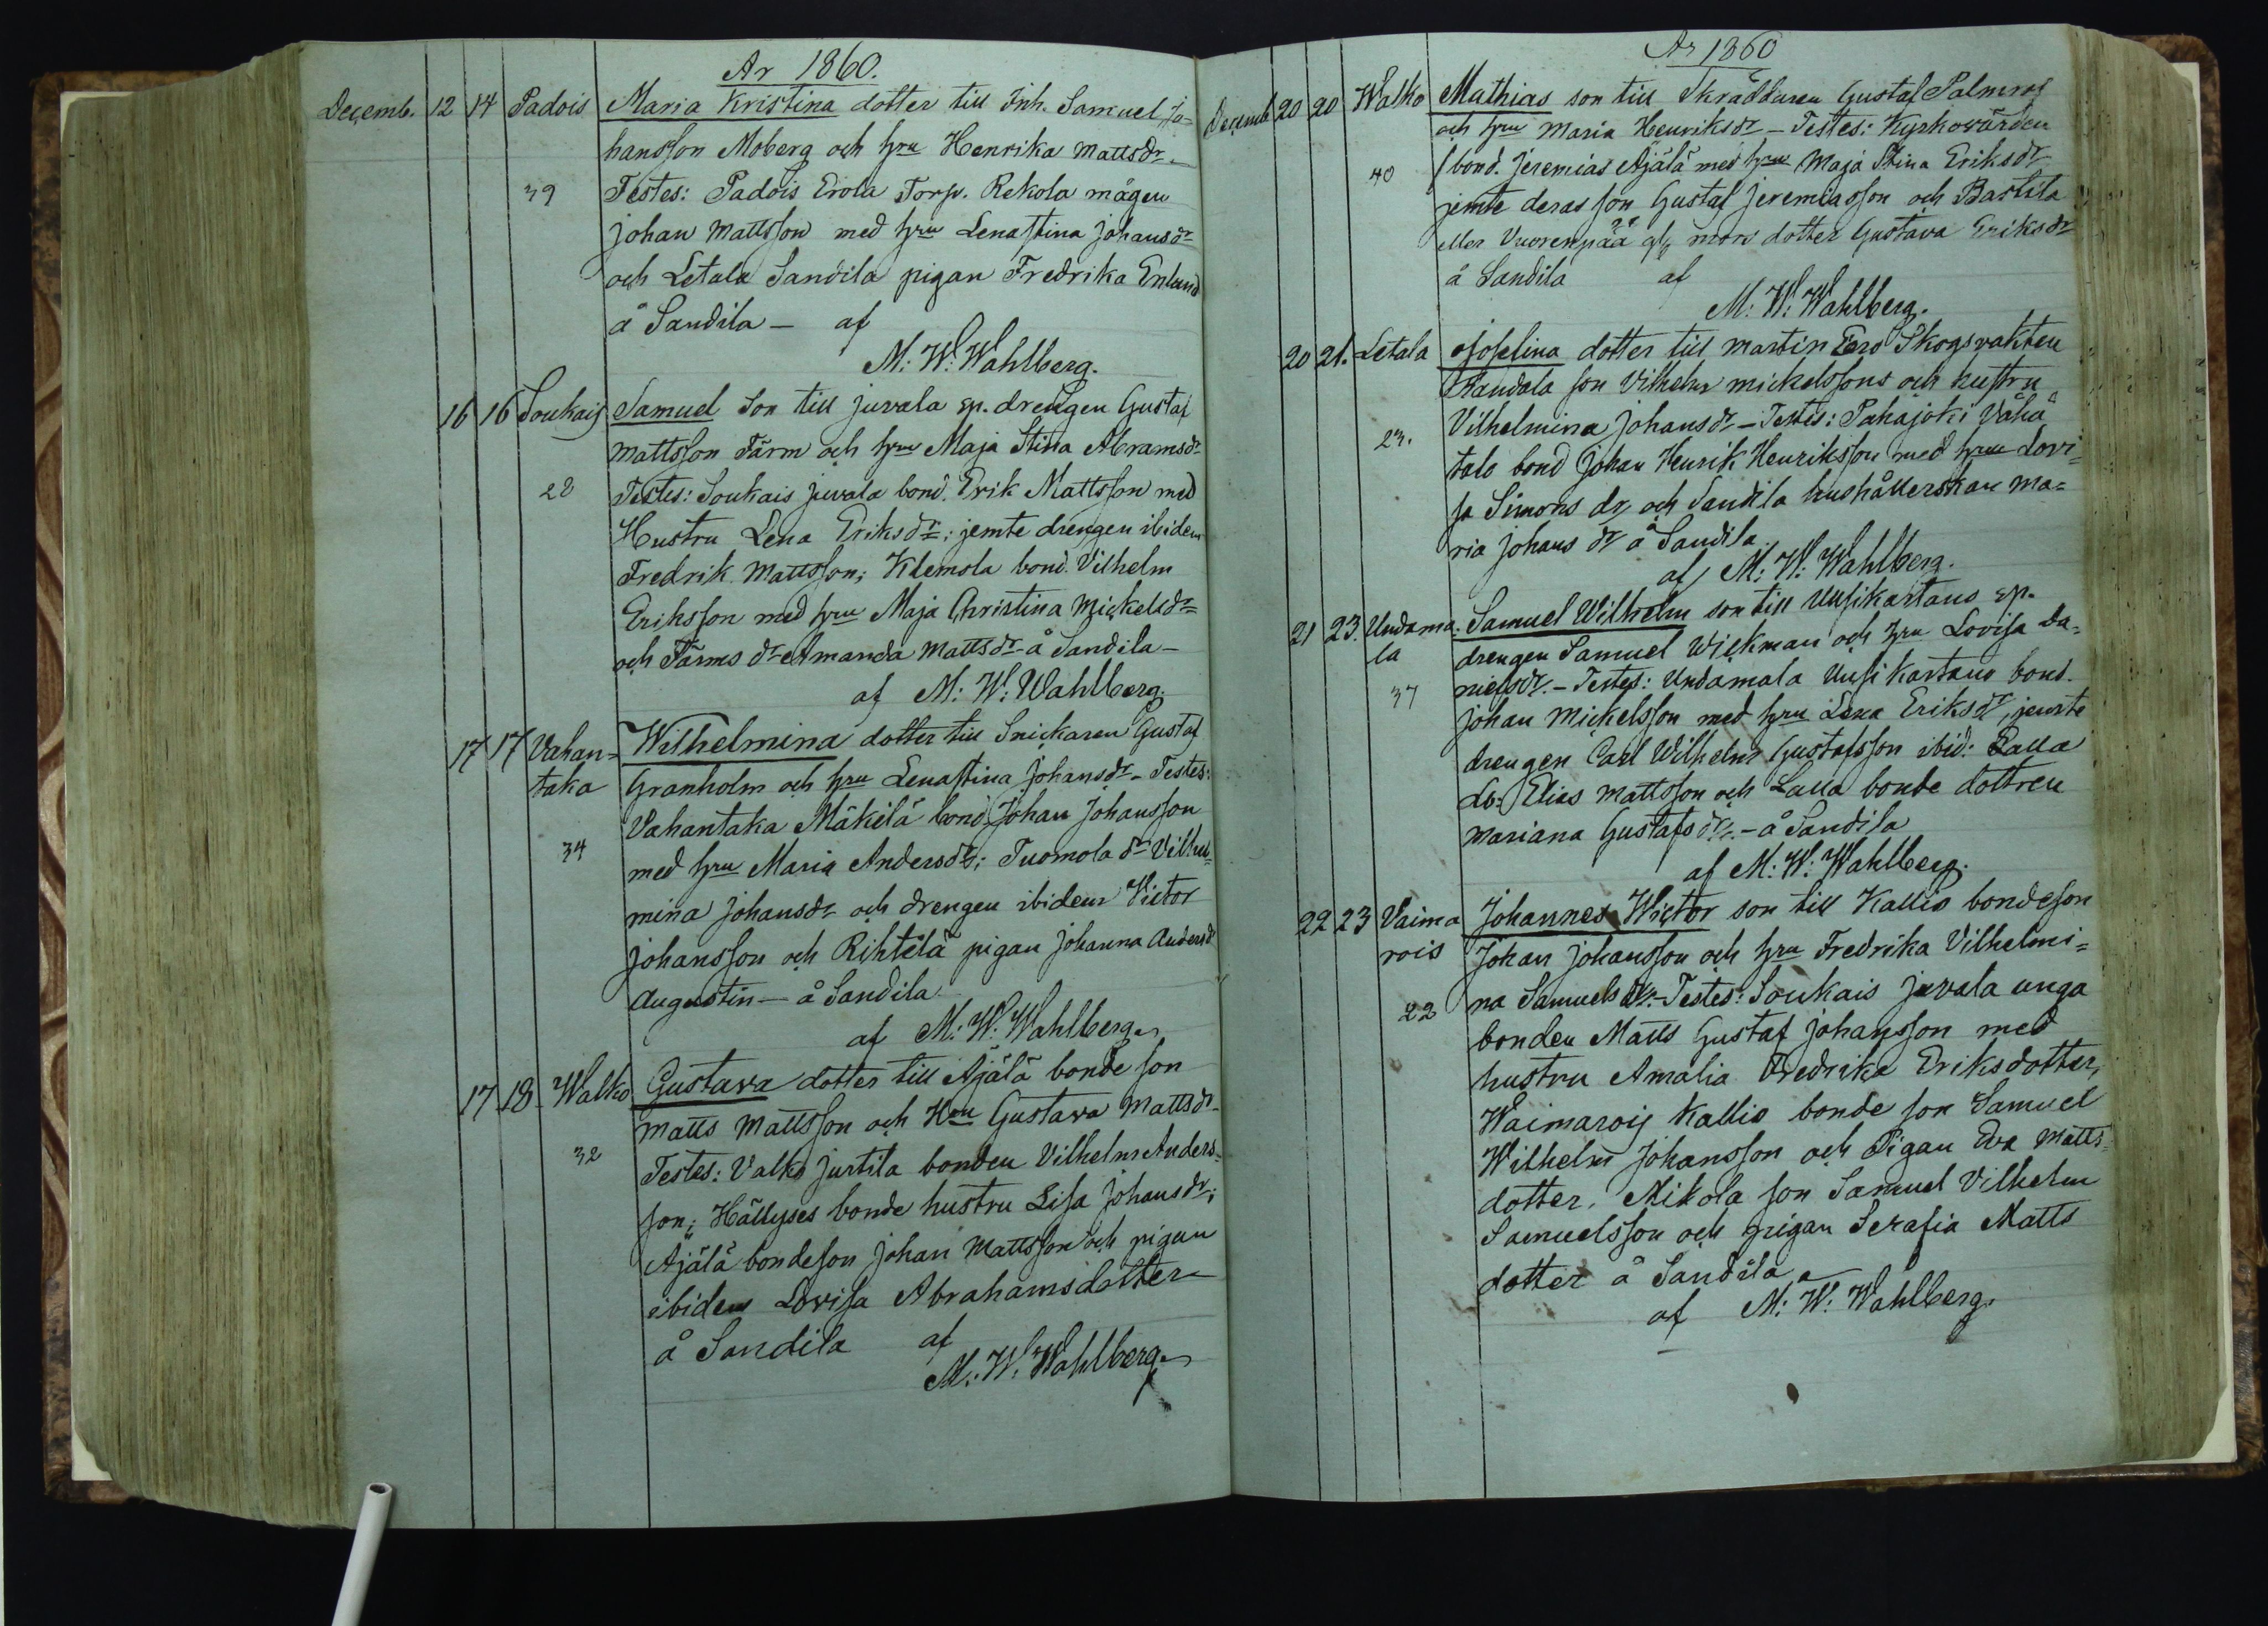 Ar 1860.
Decemb. 12 14 Padois Maria Kristina dotter till Inh. Samuel Jo=
hansson Moberg och hru Henrika Mattsdr.
39 Testes: Padois Erola Torp. Rekola mågen
Johan Mattsson med hru Lenastina Johansdr
och Letala Sandila pigan Fredrika Enlund
å Sandila — af
M: W: Wahlberg.
16 16 Soukais Samuel Son till Juvala sp. drengen Gustaf
Mattsson Färm och hru Maja Stina Abramsdr
28 Testes: Soukais Juvala bond. Erik Mattsson med
Hustru Lena Eriksdr; jemte drengen ibidem
Fredrik Mattsson; Klemola bond. Vilhelm
Eriksson med hru Maja Christina Mickelsdr
och Färms dr Amanda Mattsdr å Sandila —
af M: W: Wahlberg.
17 17 Vahan= Wilhelmina dotter till Snickaren Gustaf
taka Granholm och hru Lenastina Johansdr - Testes:
Vahantaka Mäkilä bond Johan Johansson
34 med hru Maria Andersdr; Tuomola dr Vilhel=
mina Johansdr och drengen ibidem Victor
Johansson och Rihtilä pigan Johanna Andersdr
Augustin — å Sandila
af M: W: Wahlberg
17 18 Walko Gustava dotter till Äjälä bonde son
Matts Mattsson och Hru Gustava Mattsdr
32 Testes: Valko Juttila bonden Vilhelm Anders=
son; Hällyses bonde hustru Lisa Johansdr;
Äjälä bondeson Johan Mattsson och pigan
ibidem Lovisa Abrahamsdotter
å Sandila af
M: W: Wahlberg
Ar 1860
Decemb 20 20 Walko Mathias son till Skräddaren Gustaf Palmros
och hru Maria Henriksdr - Testes: Kyrkovärden
40 /bond. Jeremias Äjälä med hru Maja Stina Eriksdr
jemte deras son Gustaf Jeremiasson och Bastila
eller Vuorenpää mori dotter Gustava Eriksdr
å Sandila af
M: W: Wahlberg.
20 21. Letala Josefina dotter till Martin Eero Skogsvakten
Randala son Vilhelm Mickelssons och hustru
23. Vilhelmina Johansdr - Testes: Pahajoki Vähä
talo bond Johan Henrik Henriksson med hru Lovi=
sa Simons dr och Sandila hushållerskan Ma=
ria Johans dr å Sandila.
af M: W: Wahlberg.
21 23. Undama Samuel Wilhelm son till Uusikartano sp.
la drengen Samuel Wickman och hru Lovisa Da=
37 nielsdr. - Testes: Undamala Uusikartano bond.
Johan Mickelsson med hru Lena Eriksdr, jemte
drengen Carl Wilhelm Gustafsson ibid: Lalla
dr: Elias Mattsson och Lalla bonde dottren
Mariana Gustafsdr. - å Sandila
af M: W: Wahlberg.
22 23 Vaima Johannes Wictor son till Kallio bondeson
rois Johan Johansson och hru Fredrika Vilhelmi=
22 na Samuelsdr. - Testes: Soukais Juvala unga
bonden Matts Gustaf Johansson med
hustru Amalia Fredrika Eriksdotter,
Waimarois Kallio bonde son Samuel
Wilhelm Johansson och Pigan Eva Matts=
dotter, Mikola son Samuel Vilhelm
Samuelsson och pigan Serafia Matts
dotter å Sandila
af M: W: Wahlberg.